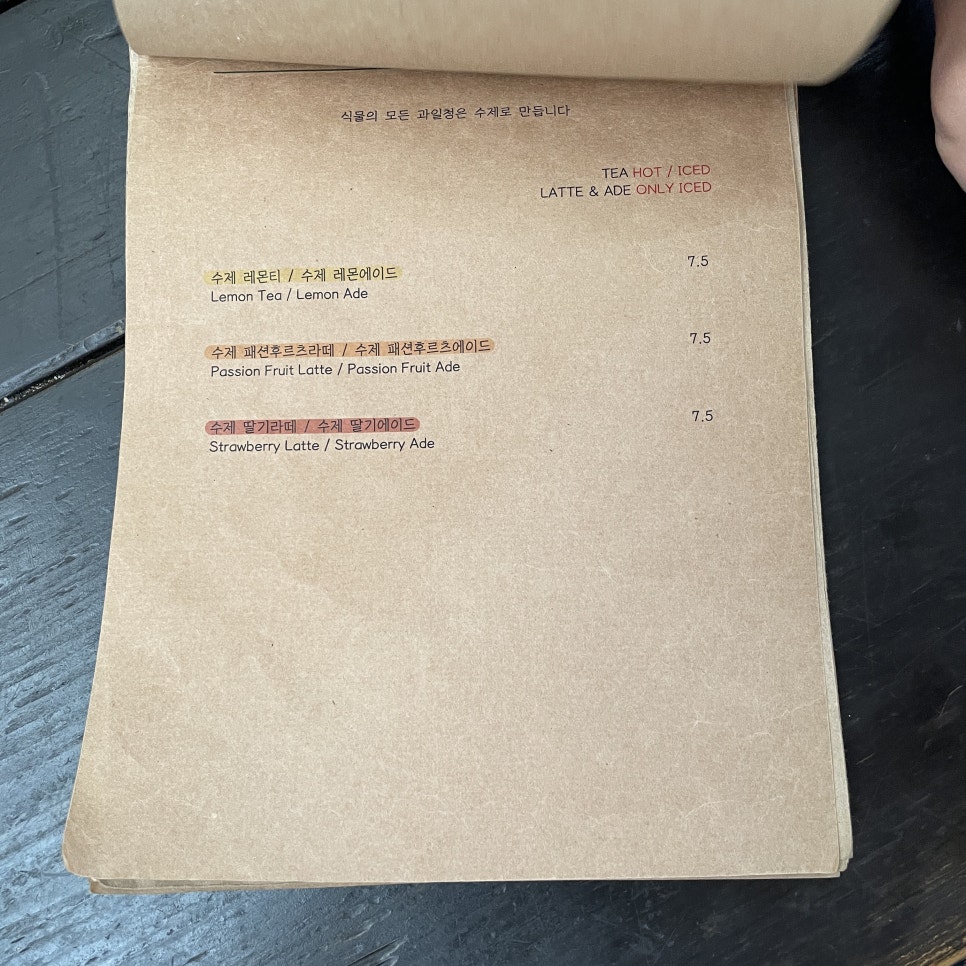 식물의 모든 과일청은 수제로 만듭니다
TEA HOT / ICED
LATTE & ADE ONLY ICED
수제 레몬티 / 수제 레몬에이드 7.5
Lemon Tea / Lemon Ade
수제 패션후르츠라떼 / 수제 패션후르츠에이드 7.5
Passion Fruit Latte / Passion Fruit Ade
수제 딸기라떼 / 수제 딸기에이드 7.5
Strawberry Latte / Strawberry Ade